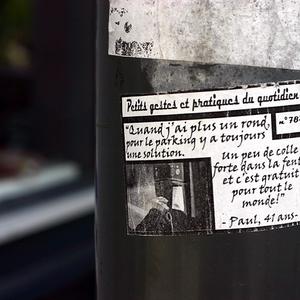 Petits gestes et pratiques du quotidien
n°78
"Quand j'ai plus un rond,
pour le parking y a toujours
une solution.
Un peu de colle
forte dans la fente
et c'est gratuit
pour tout le
monde!"
- Paul, 41 ans-